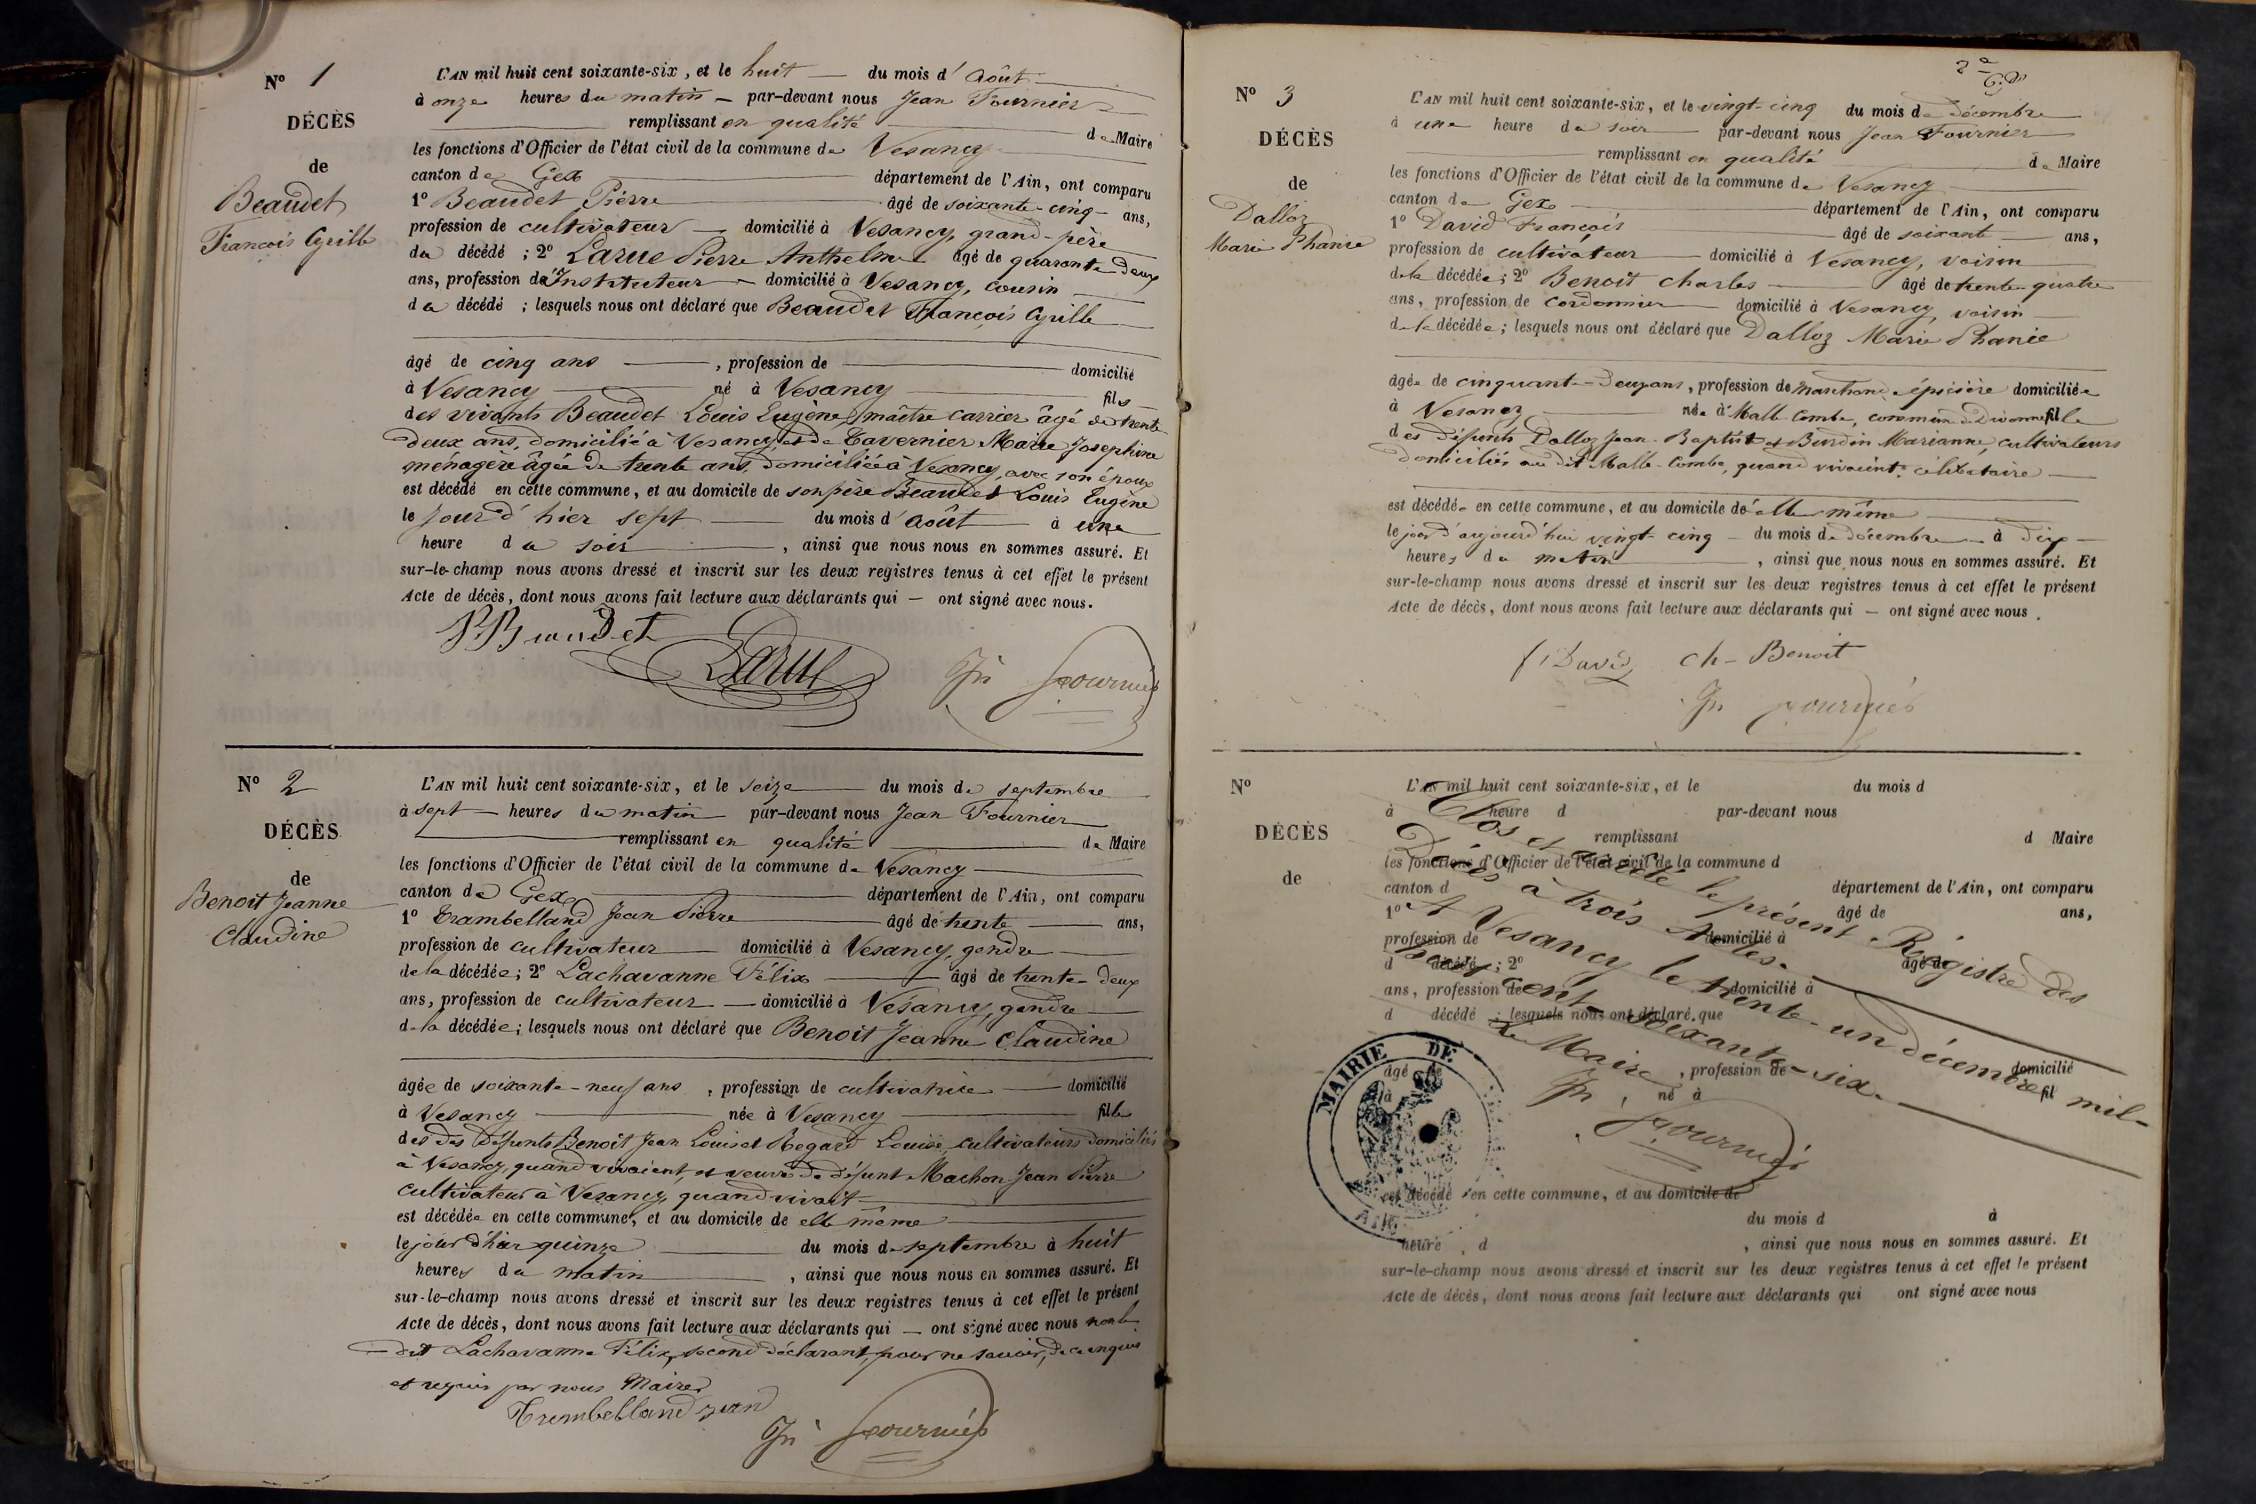 N° 1
DÉCÈS
de
Beaudet
François Cyrille
L'AN mil huit cent soixante-six, et le huit du mois d'août
à onze heures du matin par-devant nous Jean Fournier
remplissant en qualité de Maire
les fonctions d'Officier de l'état civil de la commune de Vesancy
canton de Gex département de l'Ain, ont comparu
1° Beaudet Pierre âgé de soixante-cinq ans,
profession de cultivateur domicilié à Vesancy, grand-père
du décédé ; 2° Larue Pierre Anthelme âgé de quarante deux
ans, profession d'Instituteur domicilié à Vesancy, cousin
du décédé ; lesquels nous ont déclaré que Beaudet François Cyrille
âgé de cinq ans , profession de domicilié
à Vesancy né à Vesancy fils
des vivants Beaudet Louis Eugène, maître carrier âgé de trente
deux ans, domicilié à Vesancy, et de Tavernier Marie Josephine
ménagère âgée de trente ans, domiciliée à Vesancy, avec son époux
est décédé en cette commune, et au domicile de son père Beaudet Louis Eugène
le jour d'hier sept du mois d'août à une
heure du soir , ainsi que nous nous en sommes assuré. Et
sur-le-champ nous avons dressé et inscrit sur les deux registres tenus à cet effet le présent
Acte de décès, dont nous avons fait lecture aux déclarants qui — ont signé avec nous.
P. Beaudet
Larue
Jn Fournier
N° 2
DÉCÈS
de
Benoit Jeanne
Claudine
L'AN mil huit cent soixante-six, et le seize du mois de septembre
à sept heures du matin par-devant nous Jean Fournier
remplissant en qualité de Maire
les fonctions d'Officier de l'état civil de la commune de Vesancy
canton de Gex département de l'Ain, ont comparu
1° Trambelland Jean Pierre âgé de trente ans,
profession de cultivateur domicilié à Vesancy, gendre
de la décédée ; 2° Lachavanne Félix âgé de trente-deux
ans, profession de cultivateur domicilié à Vesancy, gendre
de la décédée ; lesquels nous ont déclaré que Benoit Jeanne Claudine
âgée de soixante-neuf ans , profession de cultivatrice domicilié
à Vesancy née à Vesancy fille
des dés défunts Benoit Jean Louis et Regard Louise, cultivateurs domiciliés
à Vesancy, quand vivaient, et veuve de défunt Machon Jean Pierre
cultivateur à Vesancy quand vivait
est décédée en cette commune, et au domicile de elle même
le jour d'hier quinze du mois de septembre à huit
heures du matin , ainsi que nous nous en sommes assuré. Et
sur-le-champ nous avons dressé et inscrit sur les deux registres tenus à cet effet le présent
Acte de décès, dont nous avons fait lecture aux déclarants qui — ont signé avec nous non le
dit Lachavanne Félix, second déclarant, pour ne savoir, de ce enquis
et requis par nous Maire
Trembelland jean
Jn Fournier
N° 3
DÉCÈS
de
Dalloz
Marie Phanie
L'AN mil huit cent soixante-six, et le vingt-cinq du mois de décembre
à une heure du soir par-devant nous Jean Fournier
remplissant en qualité de Maire
les fonctions d'Officier de l'état civil de la commune de Vesancy
canton de Gex département de l'Ain, ont comparu
1° David François âgé de soixante ans,
profession de cultivateur domicilié à Vesancy, voisin
de la décédée ; 2° Benoit Charles âgé de trente-quatre
ans, profession de cordonnier domicilié à Vesancy, voisin
de la décédée ; lesquels nous ont déclaré que Dalloz Marie Phanie
âgée de cinquante-deux ans, profession de marchande épicière domiciliée
à Vesancy née à Malle-Combe, commune de Divonne fille
des défunts Dalloz Jean-Baptiste et Burdin Marianne, cultivateurs
domiciliés au dit Malle-Combe, quand vivaient. célibataire
est décédée en cette commune, et au domicile de elle même
le jour d'aujourd'hui vingt-cinq du mois de décembre à dix
heures du matin , ainsi que nous nous en sommes assuré. Et
sur-le-champ nous avons dressé et inscrit sur les deux registres tenus à cet effet le présent
Acte de décès, dont nous avons fait lecture aux déclarants qui — ont signé avec nous.
f David ch-Benoit
Jn Fournier
N°
DÉCÈS
de
L'AN mil huit cent soixante-six, et le du mois d
à heure d par-devant nous
remplissant d Maire
les fonctions d'Officier de l'état civil de la commune d
canton d département de l'Ain, ont comparu
1° âgé de ans,
profession de domicilié à
d décédé ; 2° âgé de
ans, profession de domicilié à
d décédé ; lesquels nous ont déclaré que
âgé de , profession de domicilié
à , né à fil
est décédé en cette commune, et au domicile de
du mois d à
heure d , ainsi que nous nous en sommes assuré. Et
sur-le-champ nous avons dressé et inscrit sur les deux registres tenus à cet effet le présent
Acte de décès, dont nous avons fait lecture aux déclarants qui ont signé avec nous
Clos et arrêté le présent Régistre des
Décès à trois Actes.
A Vesancy le trente-un décembre mil-
huit cent soixante-six.
Le Maire
Jn Fournier
MAIRIE DE
AIN